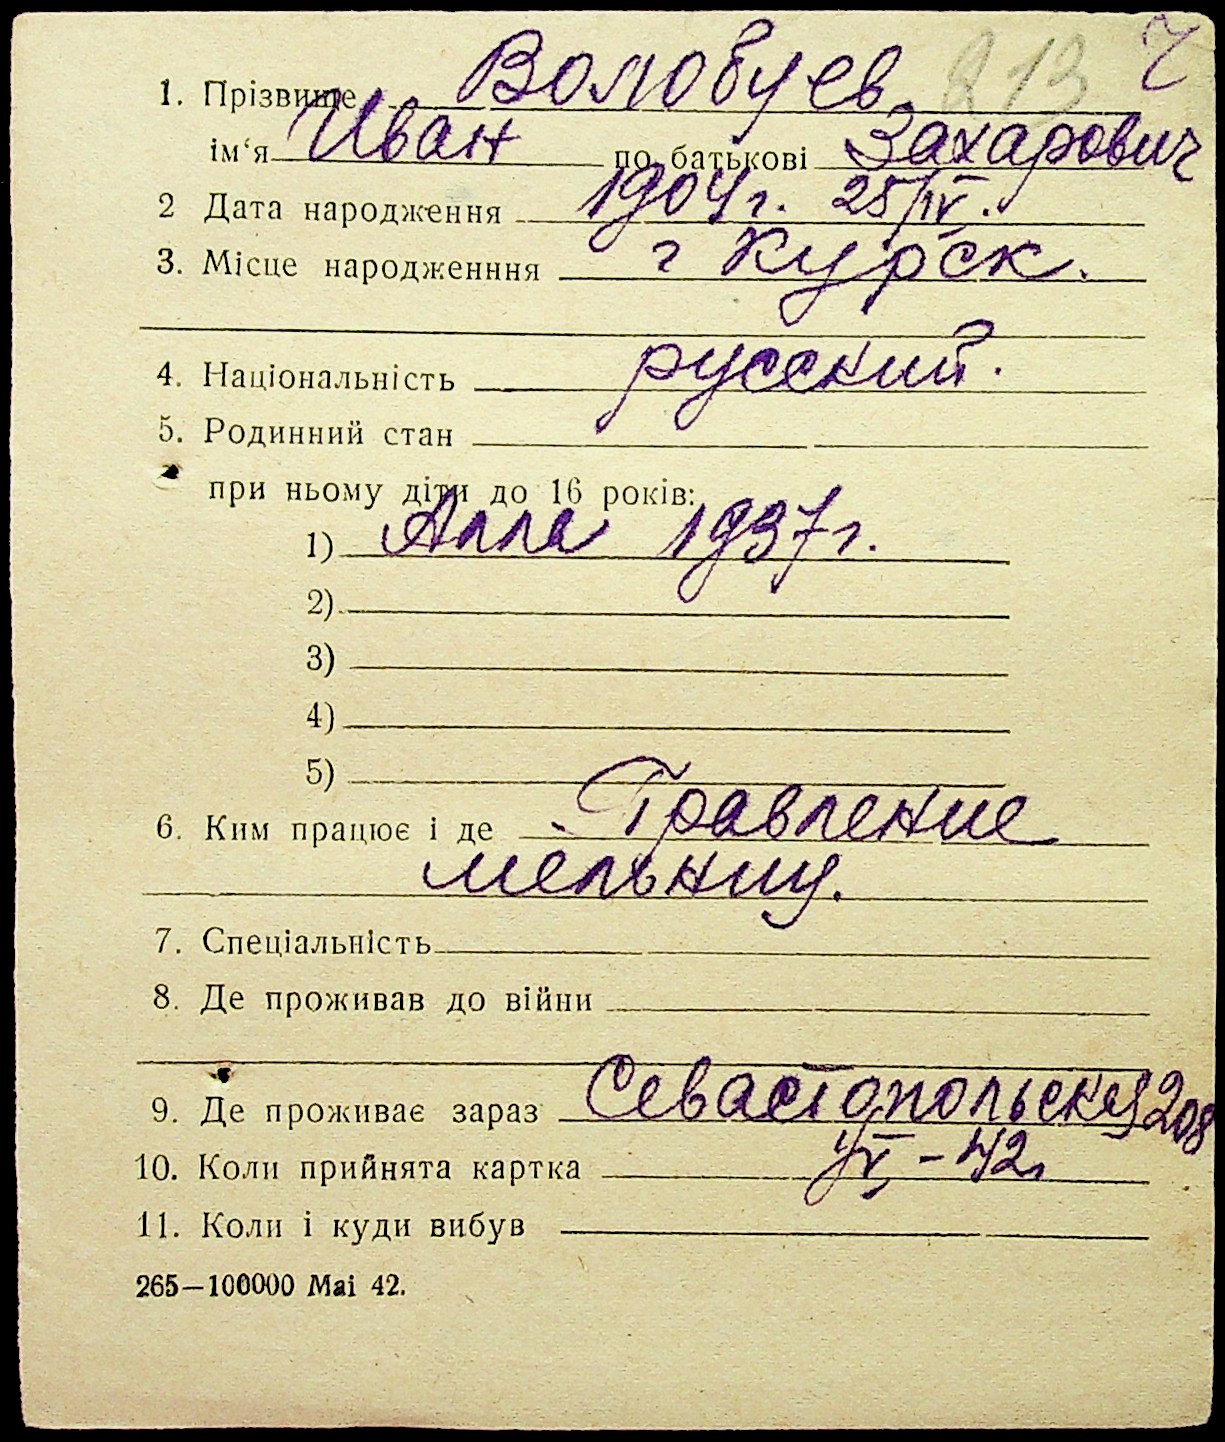 213 Ч
1. Прізвище Волобуев.
ім‘я Иван по батькові Захарович
2 Дата народження 1904 г. 25/IV.
3. Місце народженння г Курск.
4. Національність русский.
5. Родинний стан
при ньому діти до 16 років:
1) Алла 1937 г.
2)
3)
4)
5)
6. Ким працює і де Правление
мельниц.
7. Спеціальність
8. Де проживав до війни
9. Де проживає зараз Севастопольская 208
10. Коли прийнята картка - 42
11. Коли і куди вибув
265—100000 Mai 42.